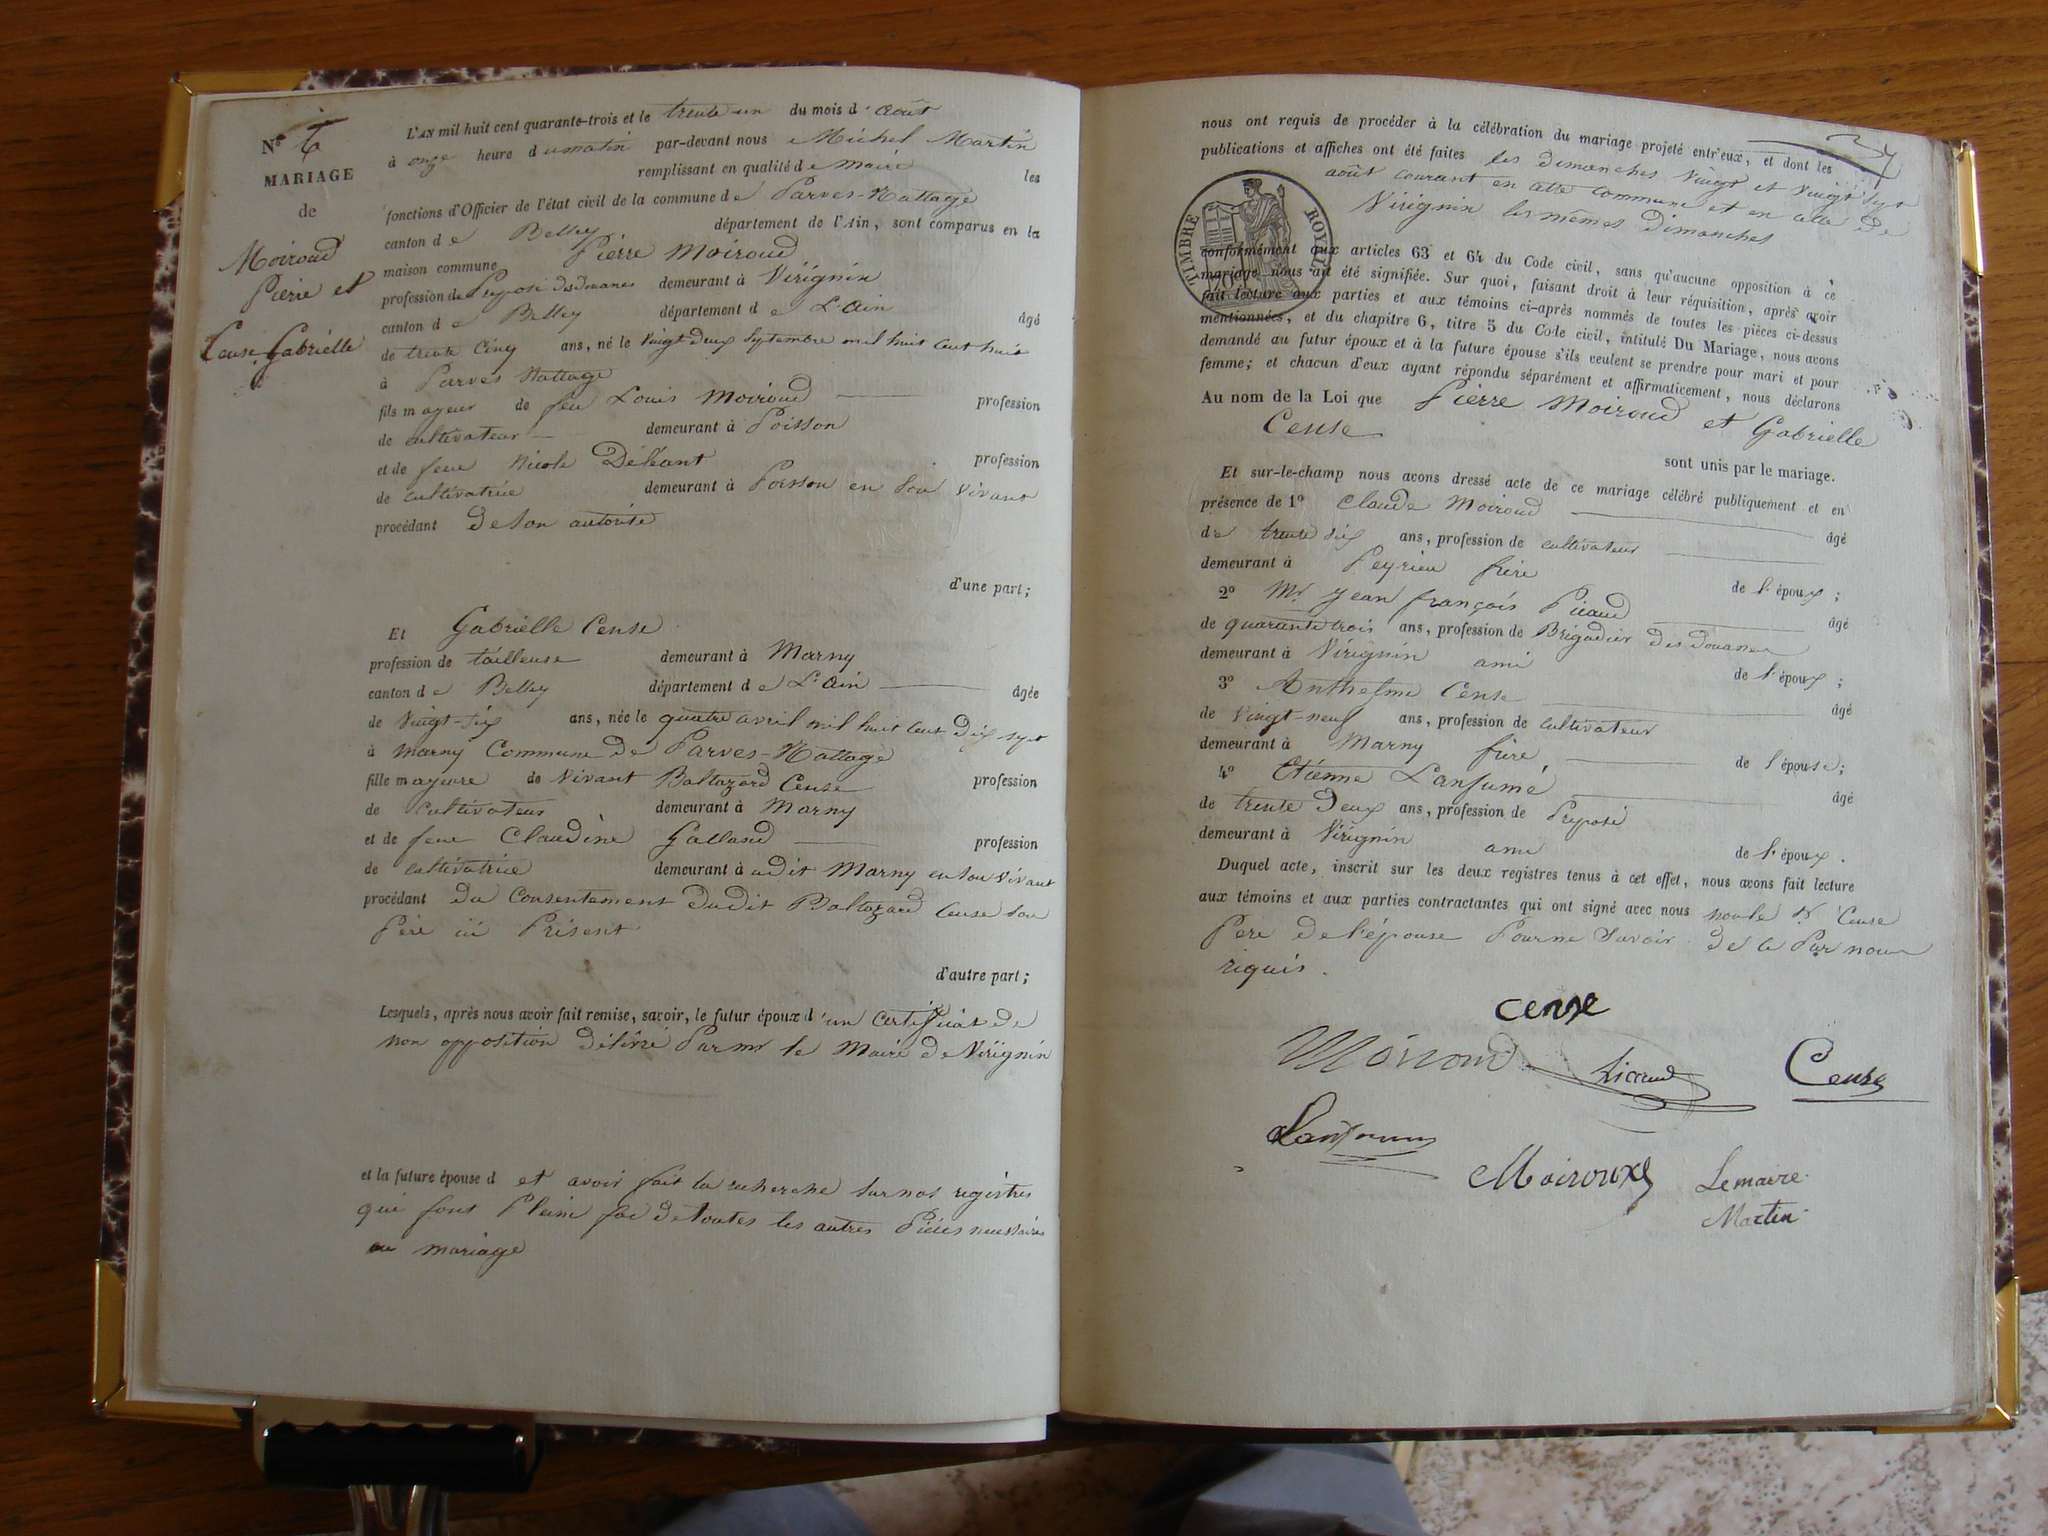 Nº 6
MARIAGE
de
Moiroud
Pierre et
Cense Gabrielle
L'AN mil huit cent quarante-trois et le trente un du mois d'août
à onze heure du matin par-devant nous Michel Martin
remplissant en qualité de maire les
fonctions d'Officier de l'état civil de la commune de Parves-Nattage
canton de Belley département de l'Ain, sont comparus en la
maison commune Pierre Moiroud
profession de Preposé des douanes demeurant à Virignin
canton de Belley département de L'ain âgé
de trente Cinq ans, né le Vingt deux Septembre mil huit cent huit
à Parves Nattage
fils mageur de feu Louis Moiroud profession
de cultivateur demeurant à Poisson
et de feue Nicole Déléant profession
de cultivatrice demeurant à Poisson en Son Vivant
procédant de Son autorité
d'une part;
Et Gabrielle Cense
profession de tailleuse demeurant à Marny
canton de Belley département de L'ain âgée
de Vingt-Six ans, née le quatre avril mil huit cent dix sept
à Marny Commune de Parves-Nattage
fille mageure de Vivant Baltazard Cense profession
de Cultivateur demeurant à Marny
et de feue Claudine Galland profession
de cultivatrice demeurant à udit Marny en Son Vivant
procédant du Consentement dudit Baltazard Cense Son
Père ici Présent
d'autre part;
Lesquels, après nous avoir fait remise, savoir, le futur époux d'un Certificat de
non opposition délivré Par mr le Maire de Virignin
et la future épouse d et avoir fait la recherche Sur nos régistres
qui font Pleine foi de toutes les autres Pièces necessaires
au mariage
nous ont requis de procéder à la célébration du mariage projeté entr'eux, et dont les
publications et affiches ont été faites les dimanches Vingt et Vingt Sept
août courant en cette commune et en celle de
Virignin les mêmes dimanches
TIMBRE ROYAL
conformément aux articles 63 et 64 du Code civil, sans qu'aucune opposition à ce
mariage nous ait été signifiée. Sur quoi, faisant droit à leur réquisition, après avoir
fait lecture aux parties et aux témoins ci-après nommés de toutes les pièces ci-dessus
mentionnées, et du chapitre 6, titre 5 du Code civil, intitulé Du Mariage, nous avons
demandé au futur époux et à la future épouse s'ils veulent se prendre pour mari et pour
femme; et chacun d'eux ayant répondu séparément et affirmaticement, nous déclarons
Au nom de la Loi que Pierre Moiroud et Gabrielle
Cense
sont unis par le mariage.
Et sur-le-champ nous avons dressé acte de ce mariage célébré publiquement et en
présence de 1º Claude Moiroud âgé
de trente Six ans, profession de cultivateur
demeurant à Peyrieu frère de l'époux;
2º Mr Jean françois Picaud âgé
de quarante trois ans, profession de Brigadier des douanes
demeurant à Virignin ami de l'époux;
3º Anthelme Cense âgé
de Vingt-neuf ans, profession de cultivateur
demeurant à Marny frère de l'épouse;
4º Etienne Lanfumé âgé
de trente deux ans, profession de Preposé
demeurant à Virignin ami de l'époux.
Duquel acte, inscrit sur les deux registres tenus à cet effet, nous avons fait lecture
aux témoins et aux parties contractantes qui ont signé avec nous non le Sr Cense
Pere de l'épouse Pour ne Savoir de ce Par nous
riquis.
cense
Moiroud Picaud Cense
Moiroux Lemaire
Martin